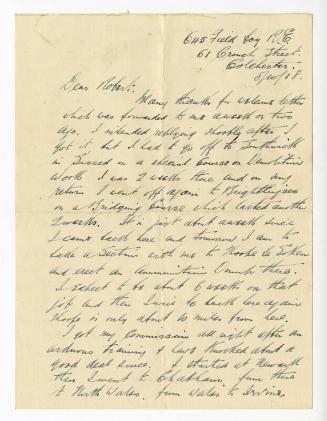 645 Field Coy R.E
61 Crouch Street.
Colchester.
5/10/18.
Dear Robert.
Many thanks for welcome letter
which was forwarded to me a week or two
ago. I intended replying shortly after I
got it but I had to go off to
in Sussex on a short course on Demolition
Work I was 2 weeks there and on my
return I went off again to Brightlingsea
on a Bridging Course which lasted another
2 weeks. It is just about a week since
I came back here and tomorrow I am to
take a Section with me to Thorpe le Soken
and erect an Ammunition Dump there.
I expect to be about 6 weeks on that
job and then I will be back here again
Thorpe is only about 10 miles from here.
I got my Commission all right after an
arduous training & have knocked about a
good deal since. I started at Newark
then I went to Chatham. from there
to North Wales. from Wales to Irvine,